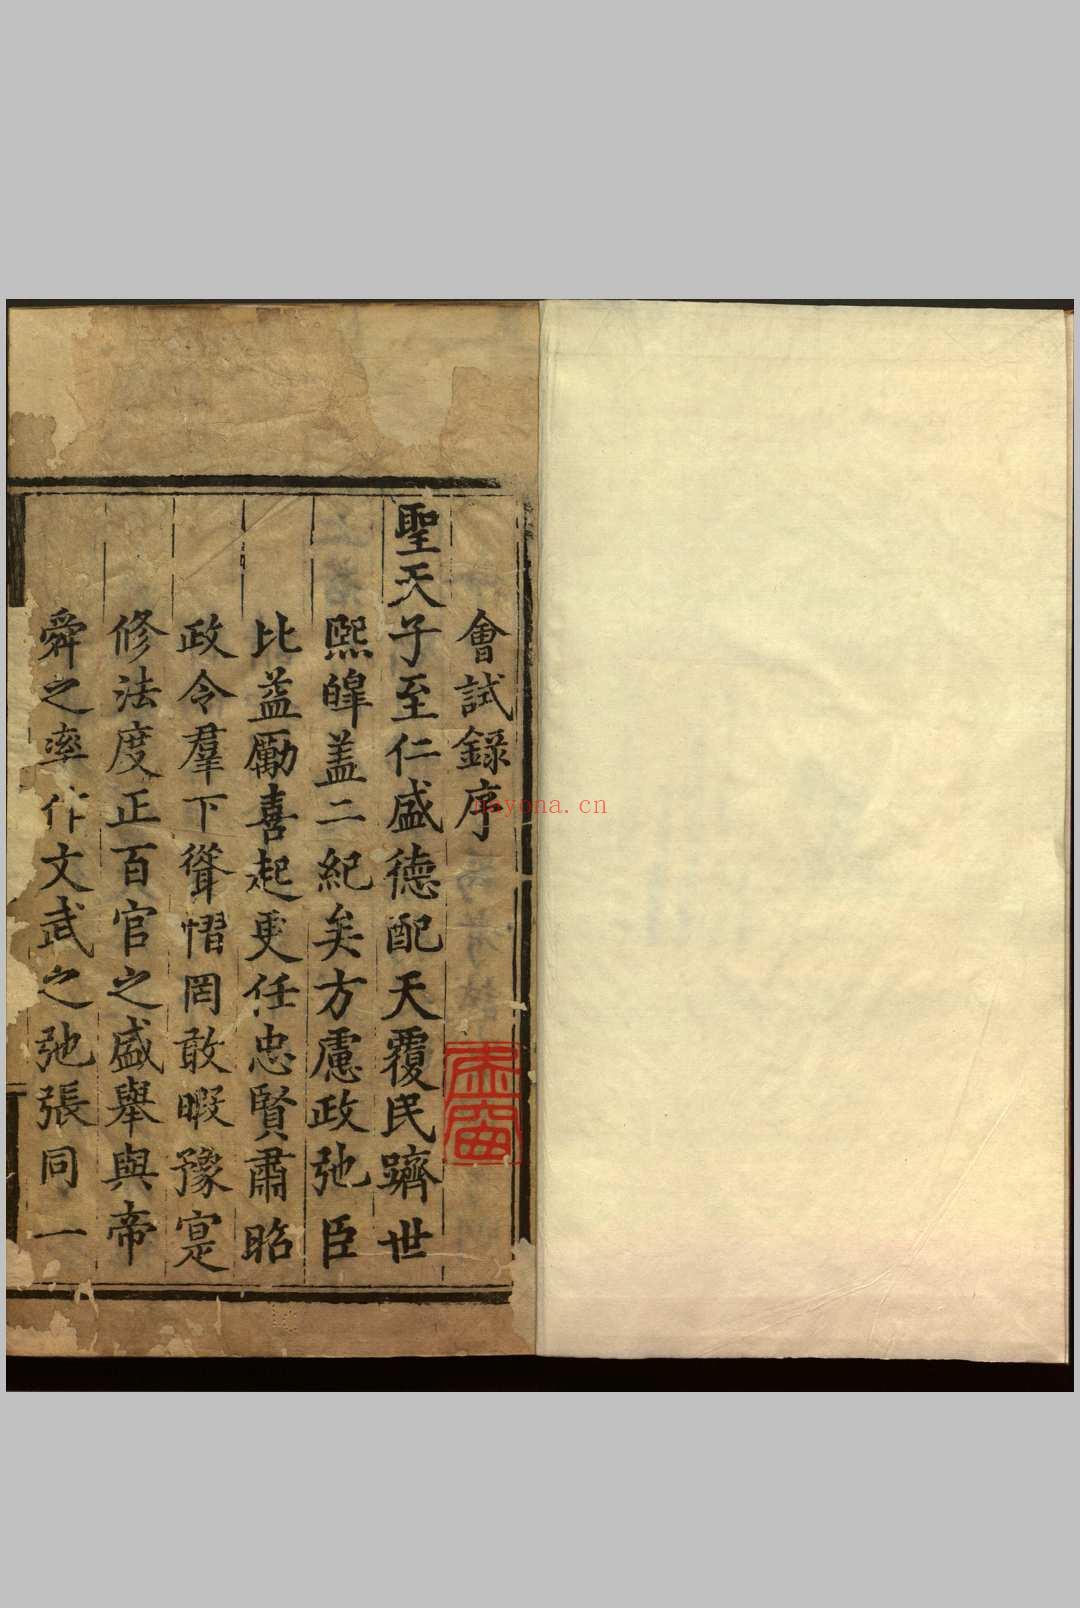 會試錄序
聖天子至仁盛德配天覆民躋世
熙皥盖二紀矣方慮政弛臣
比益勵喜起更任忠賢肅昭
政令羣下聳慴罔敢暇豫寔
修法度正百官之盛舉與帝
舜之率作文武之弛張同一
nayona.cn